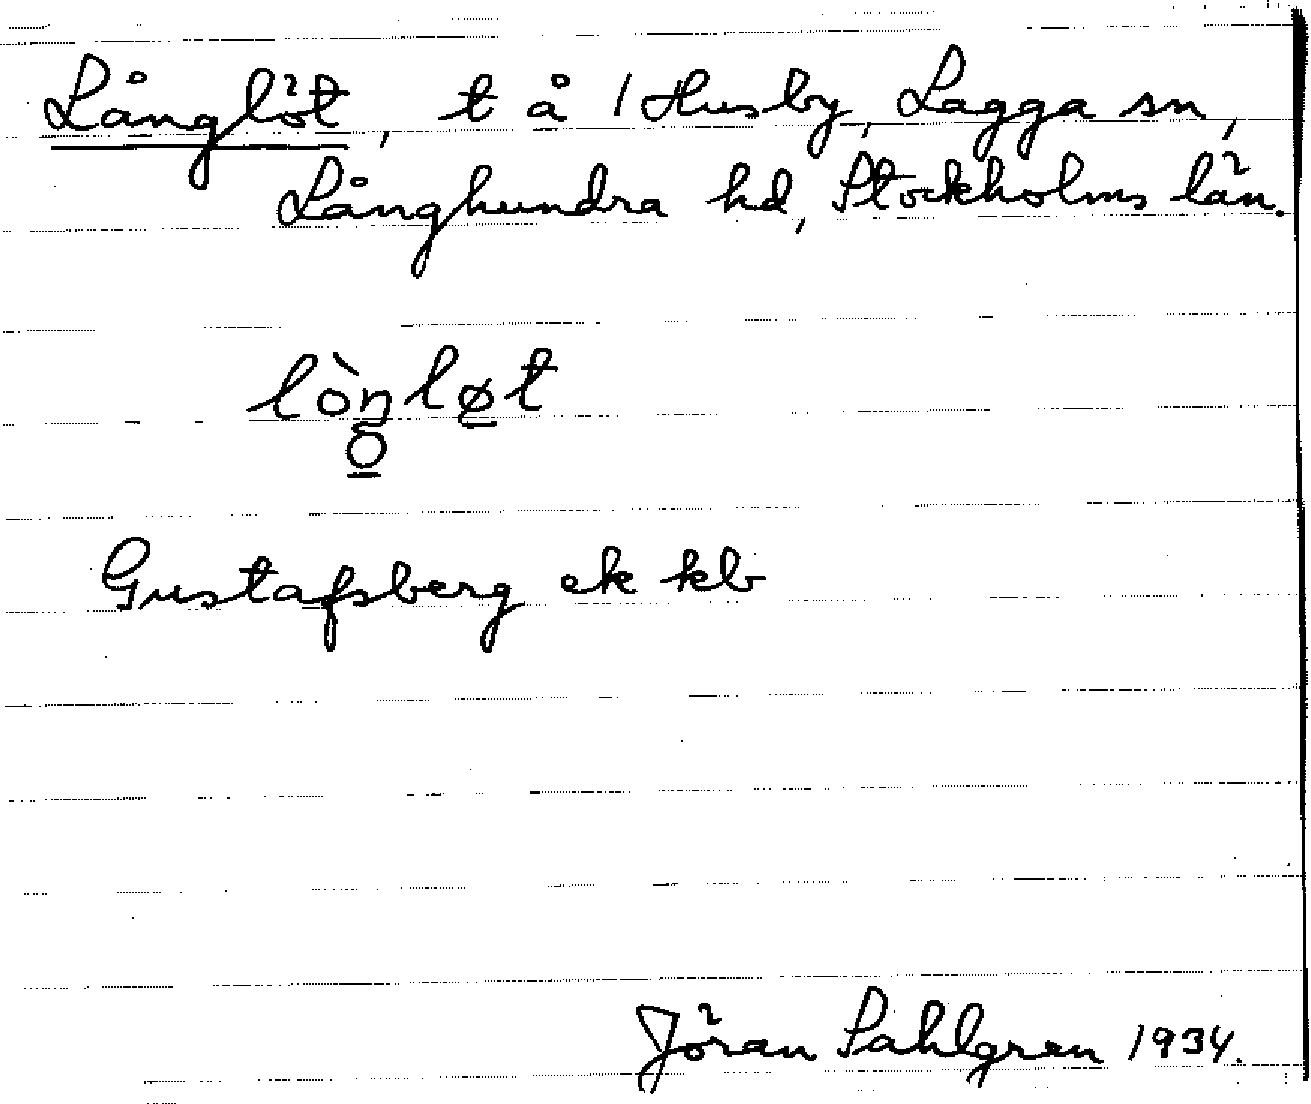 Långlöt, t å 1 Husby, Lagga sn,
Långhundra hd, Stockholms län.
lòŋløt
o
Gustafsberg ek kb
Jöran Sahlgren 1934.